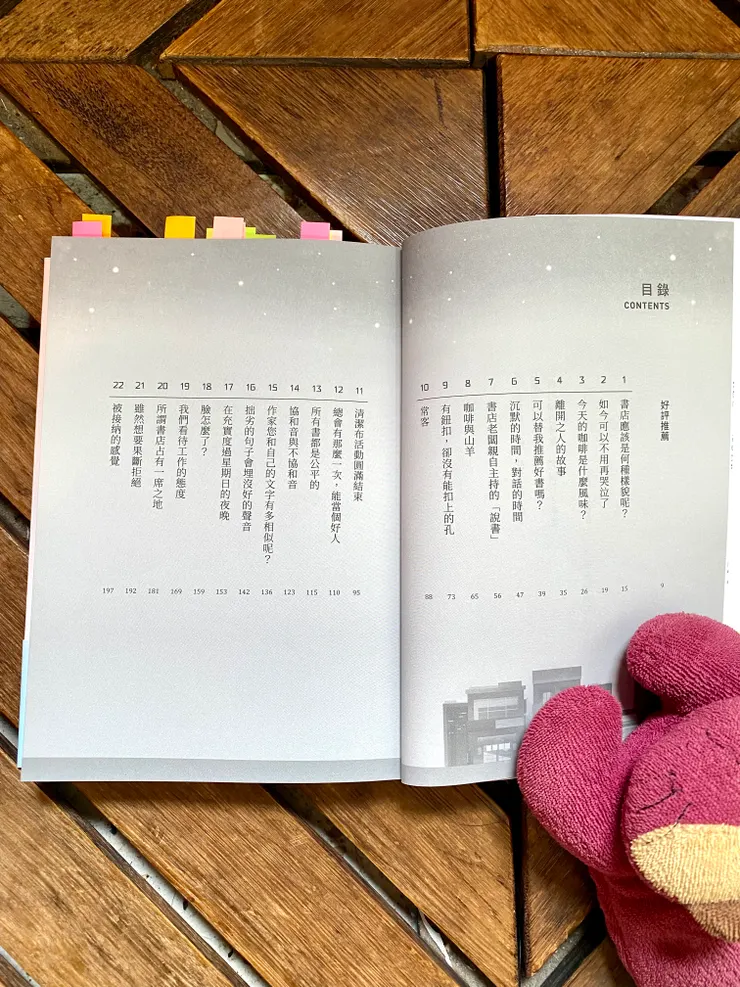 目錄
CONTENTS
好評推薦 9
1 書店應該是何種樣貌呢？ 15
2 如今可以不用再哭泣了 19
3 今天的咖啡是什麼風味？ 26
4 離開之人的故事 35
5 可以替我推薦好書嗎？ 39
6 沉默的時間，對話的時間 47
7 書店老闆親自主持的「說書」 56
8 咖啡與山羊 65
9 有鈕扣，卻沒有能扣上的孔 73
10 常客 88
11 清潔布活動圓滿結束 95
12 總會有那麼一次，能當個好人 110
13 所有書都是公平的 115
14 協和音與不協和音 123
15 作家您和自己的文字有多相似呢？ 136
16 拙劣的句子會埋沒好的聲音 142
17 在充實度過星期日的夜晚 153
18 臉怎麼了？ 159
19 我們看待工作的態度 169
20 所謂書店占有一席之地 181
21 雖然想要果斷拒絕 192
22 被接納的感覺 197